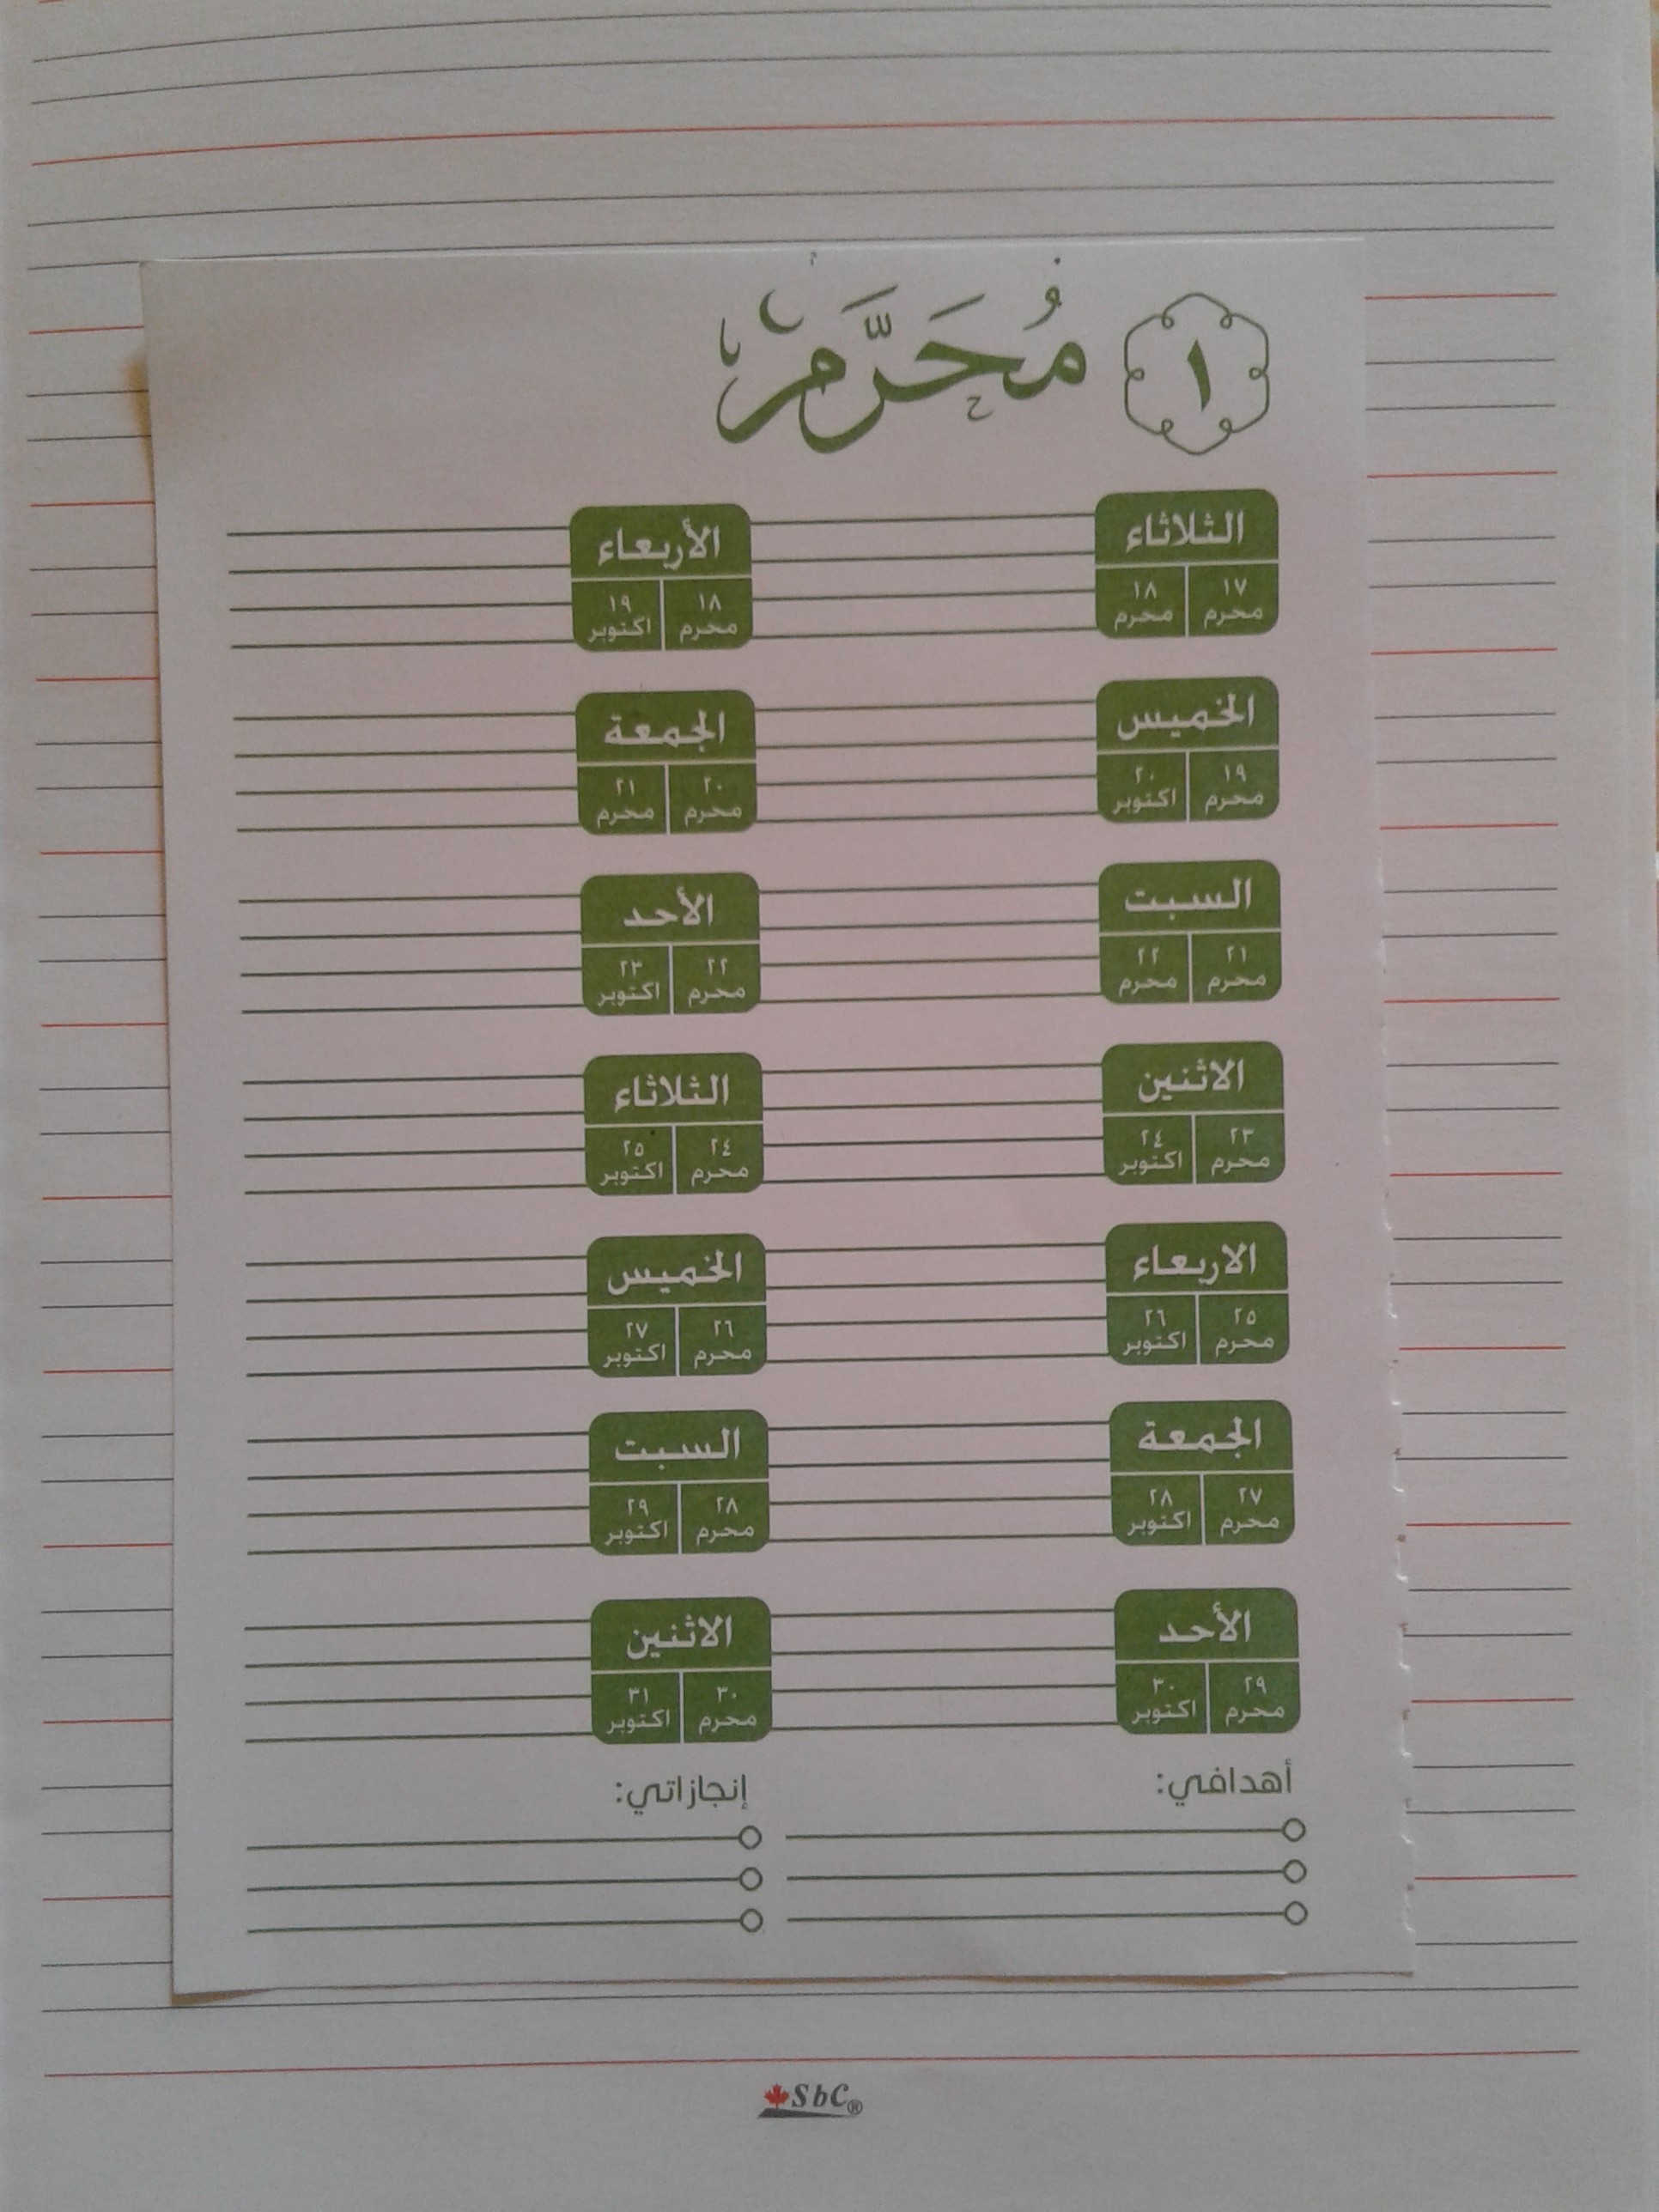 ١ مُحَرَّم
الثلاثاء
١٧ محرم ١٨ محرم
الأربعاء
١٨ محرم ١٩ اكتوبر
الخميس
١٩ محرم ٢٠ اكتوبر
الجمعة
٢٠ محرم ٢١ محرم
السبت
٢١ محرم ٢٢ محرم
الأحد
٢٢ محرم ٢٣ اكتوبر
الاثنين
٢٣ محرم ٢٤ اكتوبر
الثلاثاء
٢٤ محرم ٢٥ اكتوبر
الاربعاء
٢٥ محرم ٢٦ اكتوبر
الخميس
٢٦ محرم ٢٧ اكتوبر
الجمعة
٢٧ محرم ٢٨ اكتوبر
السبت
٢٨ محرم ٢٩ اكتوبر
الأحد
٢٩ محرم ٣٠ اكتوبر
الاثنين
٣٠ محرم ٣١ اكتوبر
أهدافي:
إنجازاتي:
SbC®